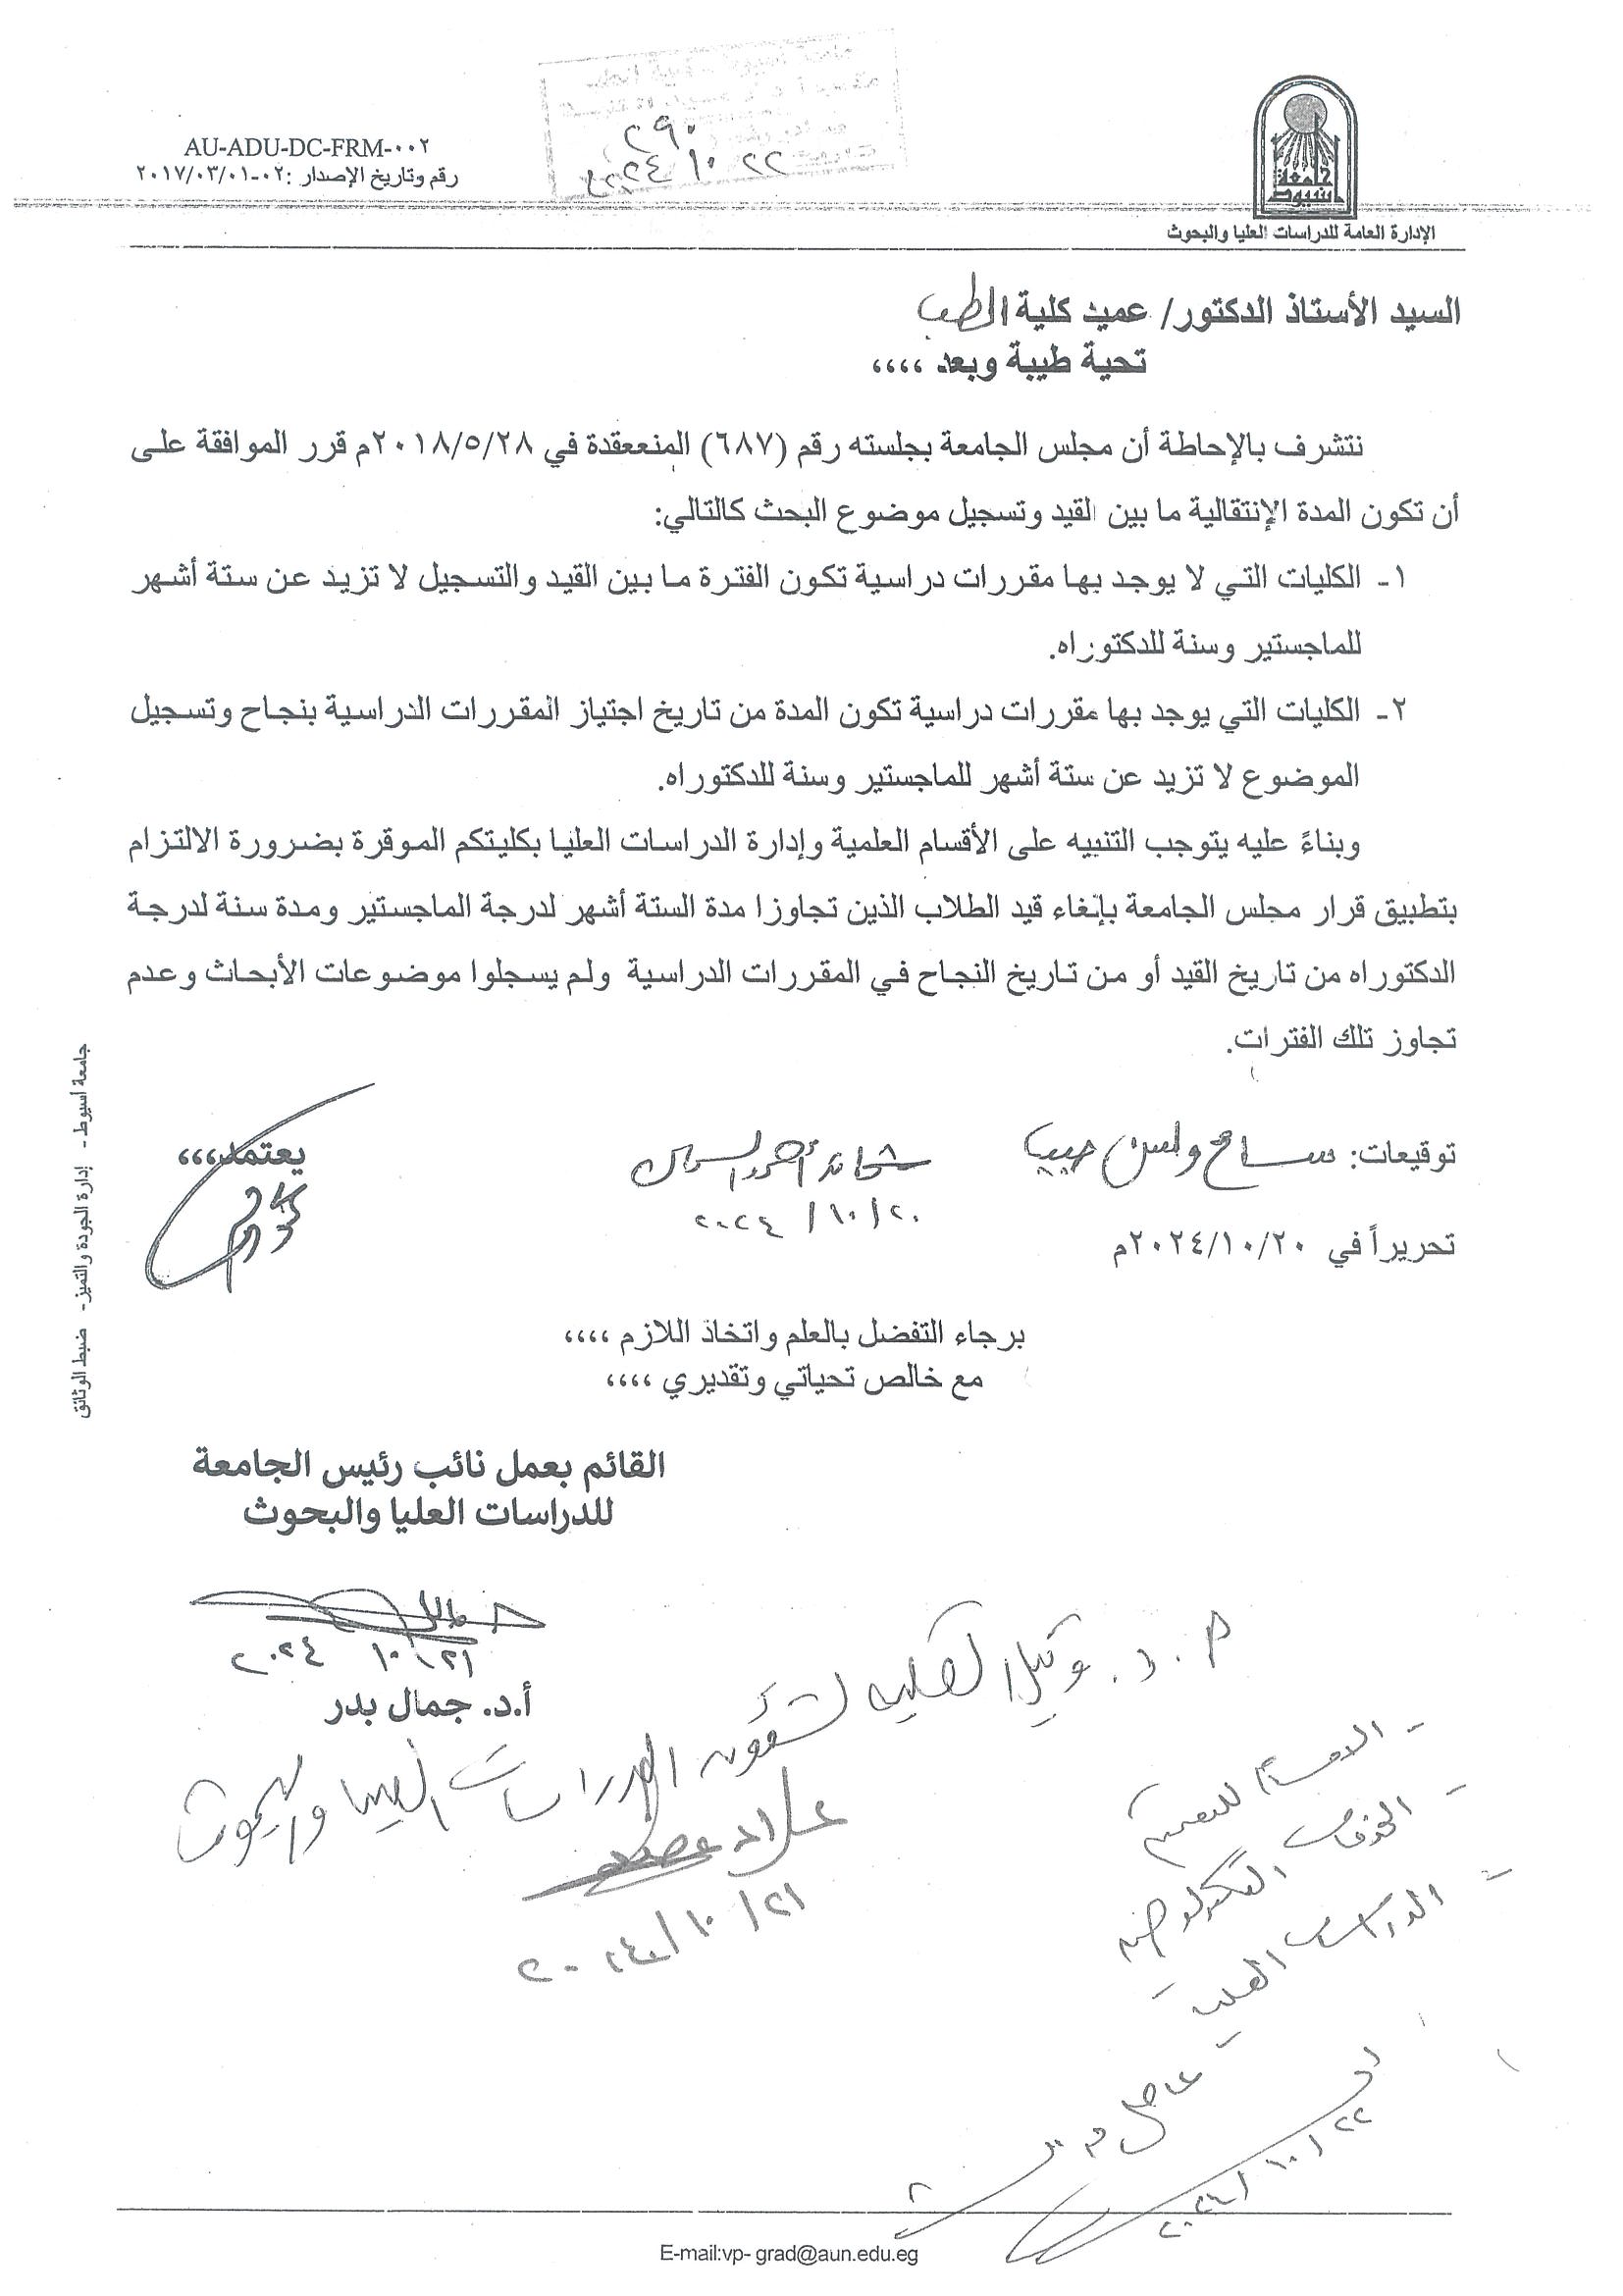 AU-ADU-DC-FRM-٠٠٢
رقم وتاريخ الإصدار :٠٢-٢٠١٧/٠٣/٠١
٢٩٠
٢٢ /١٠ /٢٠٢٤
جامعة أسيوط
الإدارة العامة للدراسات العليا والبحوث
السيد الأستاذ الدكتور/ عميد كلية الطب
تحية طيبة وبعد ،،،،
نتشرف بالإحاطة أن مجلس الجامعة بجلسته رقم (٦٨٧) المنععقدة في ٢٠١٨/٥/٢٨م قرر الموافقة على
أن تكون المدة الإنتقالية ما بين القيد وتسجيل موضوع البحث كالتالي:
١- الكليات التي لا يوجد بها مقررات دراسية تكون الفترة ما بين القيد والتسجيل لا تزيد عن ستة أشهر
للماجستير وسنة للدكتوراه.
٢- الكليات التي يوجد بها مقررات دراسية تكون المدة من تاريخ اجتياز المقررات الدراسية بنجاح وتسجيل
الموضوع لا تزيد عن ستة أشهر للماجستير وسنة للدكتوراه.
وبناءً عليه يتوجب التنبيه على الأقسام العلمية وإدارة الدراسات العليا بكليتكم الموقرة بضرورة الالتزام
بتطبيق قرار مجلس الجامعة بإلغاء قيد الطلاب الذين تجاوزا مدة الستة أشهر لدرجة الماجستير ومدة سنة لدرجة
الدكتوراه من تاريخ القيد أو من تاريخ النجاح في المقررات الدراسية ولم يسجلوا موضوعات الأبحاث وعدم
تجاوز تلك الفترات.
توقيعات: سامح ولسن حبيب
يعتمد،،،
٢٠/١٠/ ٢٠٢٤
تحريراً في ٢٠٢٤/١٠/٢٠م
برجاء التفضل بالعلم واتخاذ اللازم ،،،،
مع خالص تحياتي وتقديري ،،،،
القائم بعمل نائب رئيس الجامعة
للدراسات العليا والبحوث
٢١/ ١٠/ ٢٠٢٤
أ.د. جمال بدر
أ.د. وكيل الكلية لشؤون الدراسات العليا والبحوث
علاء عطية
٢١/ ١٠/ ٢٠٢٤
- الأقسام للتعميم
- الخدمات التكنولوجية
- الدراسات العليا
٢٢/١٠/٢٠٢٤
جامعة أسيوط - إدارة الجودة والتميز- ضبط الوثائق
E-mail:vp- grad@aun.edu.eg